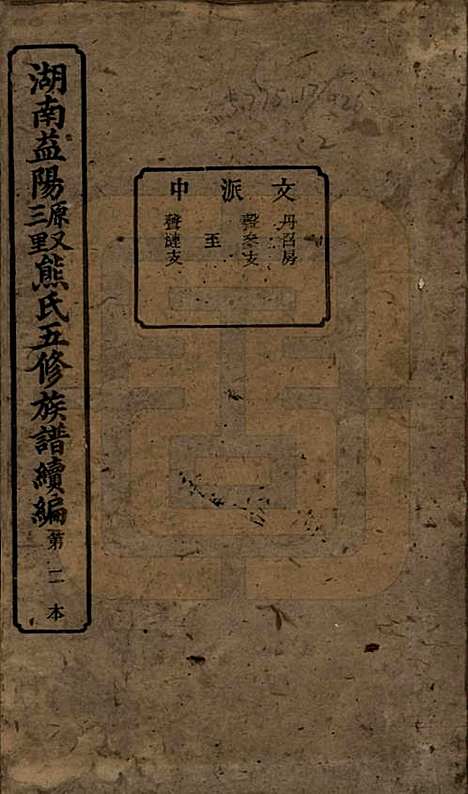 湖南益陽原又三里熊氏五修族譜續編第二本
文派中
丹召房
聲叅支
至
聲漣支